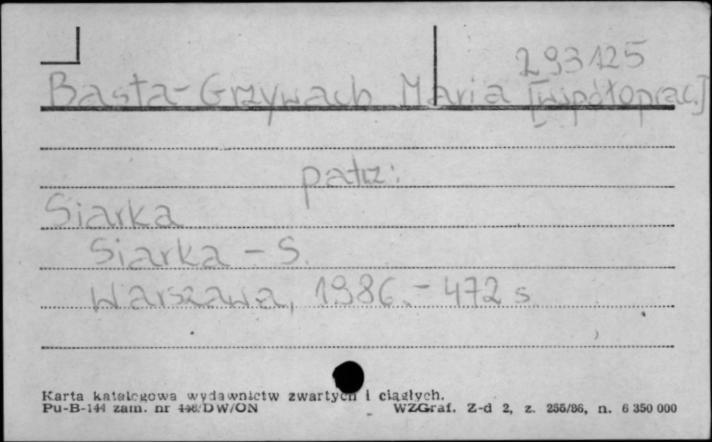 293125
Basta-Grzywach Maria [współoprac.]
patrz:
Siarka
Siarka - S.
Warszawa, 1986. - 472 s.
Karta katalogowa wydawnictw zwartych i ciągłych.
Pu-B-144 zam. nr /DW/ON WZGraf. Z-d 2, z. 255/86, n. 6 350 000